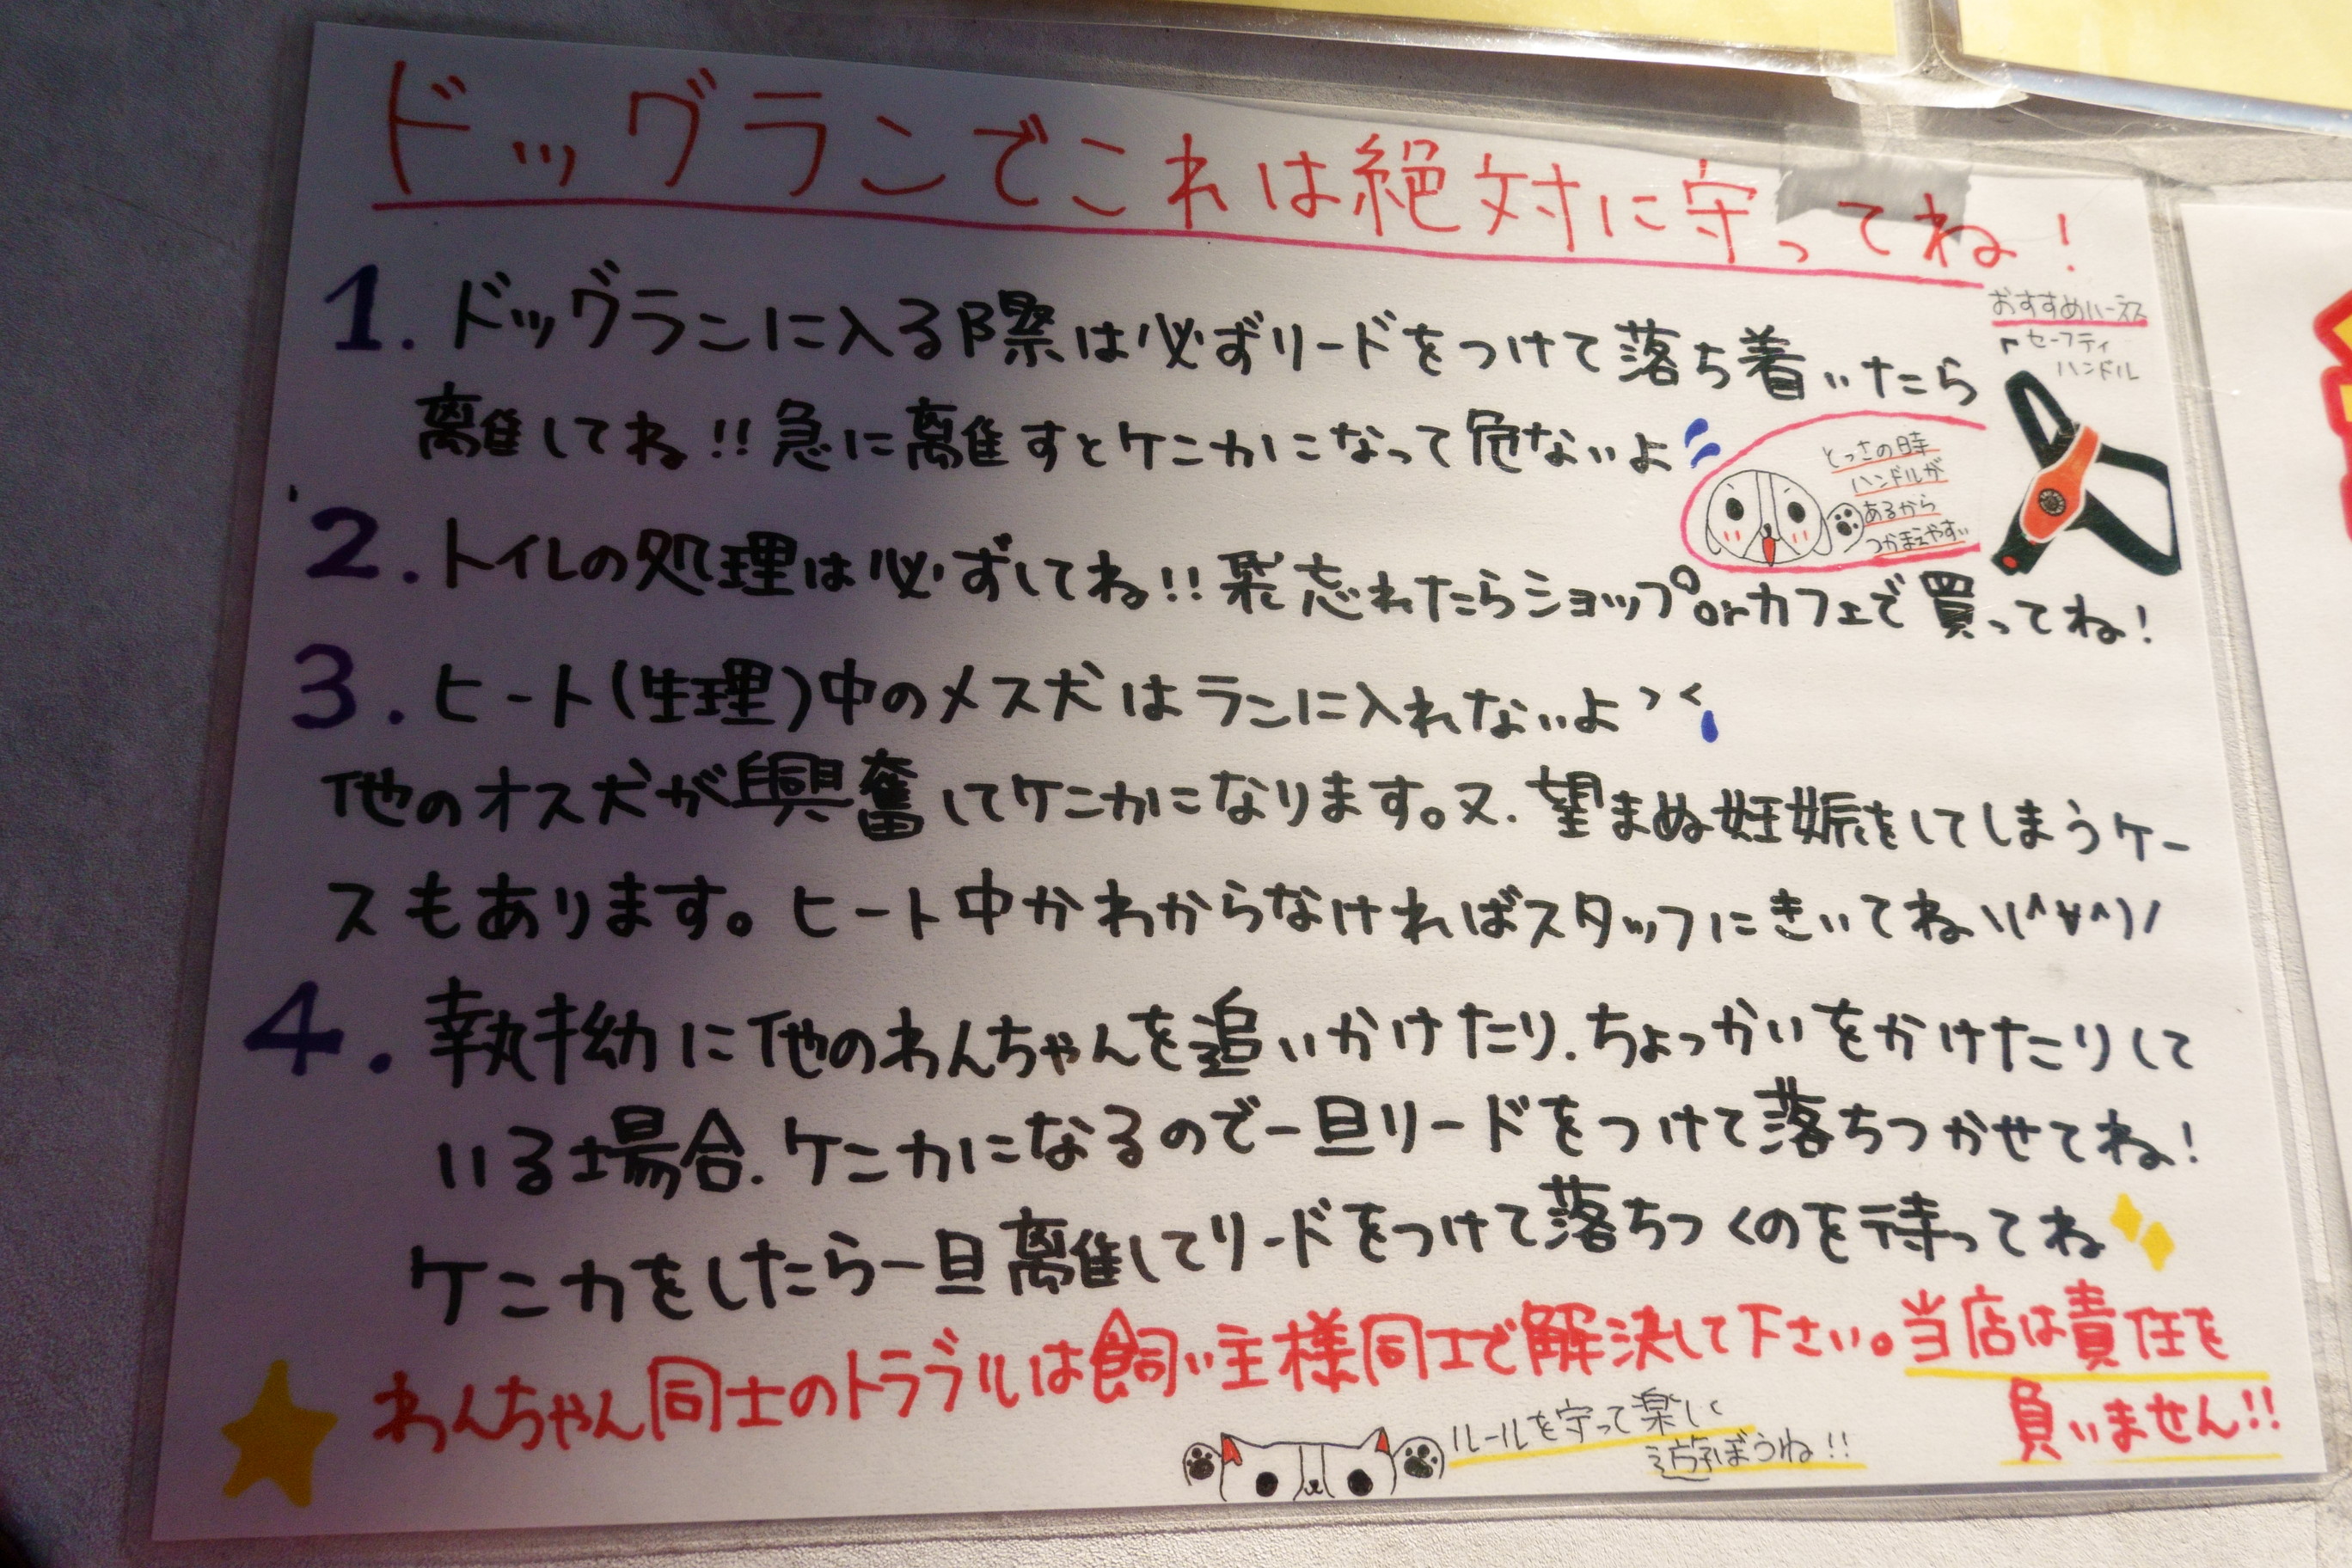 ドッグランでこれは絶対に守ってね!
1.ドッグランに入る際は必ずリードをつけて落ち着いたら
離してね!!急に離すとケンカになって危ないよ
おすすめハーネス
セーフティ
ハンドル
とっさの時
ハンドルが
あるから
つかまえやすい
2.トイレの処理は必ずしてね!!袋忘れたらショップorカフェで買ってね!
3.ヒート(生理)中のメス犬はランに入れないよ><
他のオス犬が興奮してケンカになります。又.望まぬ妊娠をしてしまうケー
スもあります。ヒート中かわからなければスタッフにきいてね\(^∀^)/
4.執拗に他のわんちゃんを追いかけたり.ちょっかいをかけたりして
いる場合.ケンカになるので一旦リードをつけて落ちつかせてね!
ケンカをしたら一旦離してリードをつけて落ちつくのを待ってね
わんちゃん同士のトラブルは飼い主様同士で解決して下さい。当店は責任を
負いません!!
ルールを守って楽しく
遊ぼうね!!